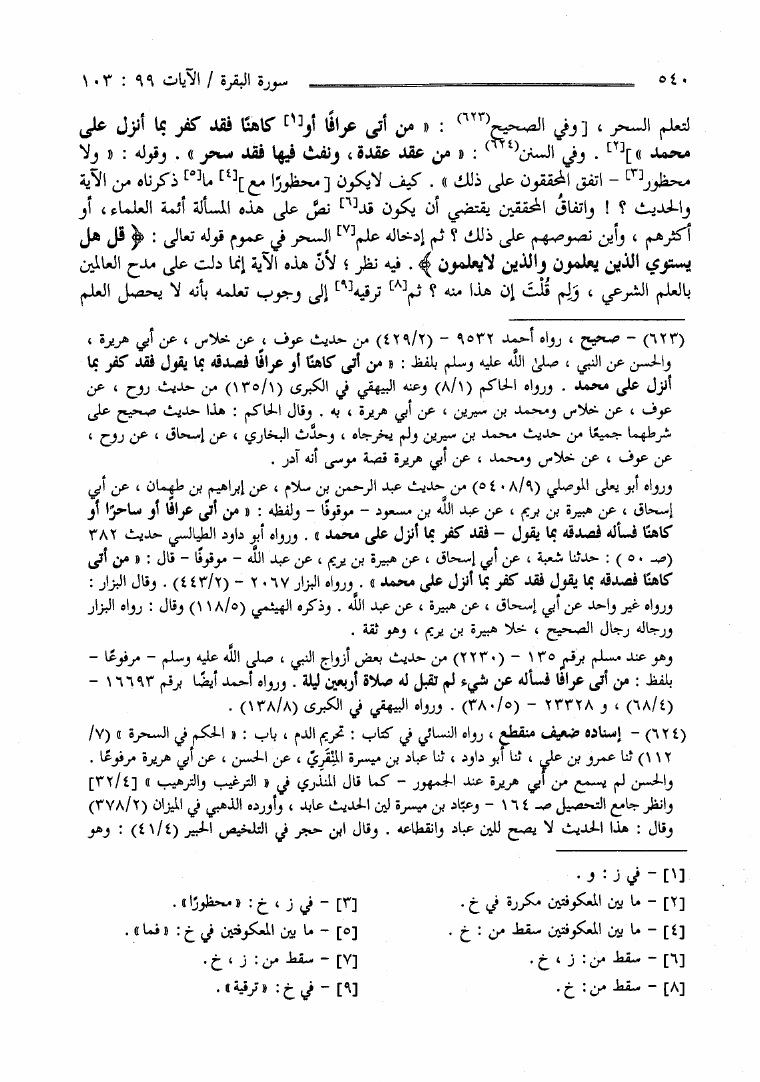 ٥٤٠ سورة البقرة / الآيات ٩٩ : ١٠٣
لتعلم السحر ، [ وفي الصحيح(٦٢٣) : « من أتى عرافًا أو[١] كاهنًا فقد كفر بما أنزل على
محمد »][٢] . وفي السنن(٦٢٤) : « من عقد عقدة، ونفث فيها فقد سحر » . وقوله : « ولا
محظور[٣] - اتفق المحققون على ذلك » . كيف لايكون [ محظورًا مع ][٤] ما[٥] ذكرناه من الآية
والحديث ؟ ! واتفاقُ المحققين يقتضي أن يكون قد[٦] نصَّ على هذه المسألة أئمة العلماء، أو
أكثرهم ، وأين نصوصهم على ذلك ؟ ثم إدخاله علم[٧] السحر في عموم قوله تعالى : ﴿ قل هل
يستوي الذين يعلمون والذين لايعلمون ﴾ . فيه نظر ؛ لأنّ هذه الآية إنما دلت على مدح العالمين
بالعلم الشرعي ، وَلِم قُلْتَ إن هذا منه ؟ ثم[٨] ترقيه[٩] إلى وجوب تعلمه بأنه لا يحصل العلم
(٦٢٣) - صحيح ، رواه أحمد ٩٥٣٢ - (٤٢٩/٢) من حديث عوف ، عن خلاس ، عن أبي هريرة ،
والحسن عن النبي ، صلىٰ اللَّه عليه وسلم بلفظ : « من أتى كاهنًا أو عرافًا فصدقه بما يقول فقد كفر بما
أنزل على محمد . ورواه الحاكم (٨/١) وعنه البيهقي في الكبرى (١٣٥/١) من حديث روح ، عن
عوف ، عن خلاس ومحمد بن سيرين ، عن أبي هريرة ، به . وقال الحاكم : هذا حديث صحيح على
شرطهما جميعًا من حديث محمد بن سيرين ولم يخرجاه ، وحدَّث البخاري ، عن إسحاق ، عن روح ،
عن عوف ، عن خلاس ومحمد ، عن أبي هريرة قصة موسى أنه آدر .
ورواه أبو يعلى الموصلي (٥٤٠٨/٩) من حديث عبد الرحمن بن سلام ، عن إبراهيم بن طهمان ، عن أبي
إسحاق ، عن هبيرة بن بريم ، عن عبد اللَّه بن مسعود - موقوفًا - ولفظه : « من أتى عرافًا أو ساحرًا أو
كاهنًا فسأله فصدقه بما يقول - فقد كفر بما أنزل على محمد » . ورواه أبو داود الطيالسي حديث ٣٨٢
(صـ ٥٠) : حدثنا شعبة ، عن أبي إسحاق ، عن هبيرة بن يريم ، عن عبد اللَّه - موقوفًا - قال : « من أتى
كاهنًا فصدقه بما يقول فقد كفر بما أنزل على محمد » . ورواه البزار ٢٠٦٧ - (٤٤٣/٢) . وقال البزار :
ورواه غير واحد عن أبي إسحاق ، عن هبيرة ، عن عبد اللَّه . وذكره الهيثمي (١١٨/٥) وقال : رواه البزار
ورجاله رجال الصحيح ، خلا هبيرة بن يريم ، وهو ثقة .
وهو عند مسلم برقم ١٣٥ - (٢٢٣٠) من حديث بعض أزواج النبي ، صلى اللَّه عليه وسلم - مرفوعًا -
بلفظ : من أتى عرافًا فسأله عن شيء لم تقبل له صلاة أربعين ليلة . ورواه أحمد أيضًا برقم ١٦٦٩٣ -
(٦٨/٤) ، و ٢٣٣٢٨ - (٣٨٠/٥) . ورواه البيهقي في الكبرى (١٣٨/٨) .
(٦٢٤) - إسناده ضعيف منقطع ، رواه النسائي في كتاب : تحريم الدم ، باب : « الحكم في السحرة » (٧/
١١٢) ثنا عمرو بن علي ، ثنا أبو داود ، ثنا عباد بن ميسرة المِنْقَرِيّ ، عن الحسن ، عن أبي هريرة مرفوعًا .
والحسن لم يسمع من أبي هريرة عند الجمهور - كما قال المنذري في « الترغيب والترهيب » [٣٢/٤]
وانظر جامع التحصيل صـ ١٦٤ - وعبّاد بن ميسرة لين الحديث عابد ، وأورده الذهبي في الميزان (٣٧٨/٢)
وقال : هذا الحديث لا يصح للين عباد وانقطاعه . وقال ابن حجر في التلخيص الحبير (٤١/٤) : وهو
[١] - في ز : و .
[٢] - ما بين المعكوفتين مكررة في خ. [٣] - في ز ، خ: «محظورًا» .
[٤] - ما بين المعكوفتين سقط من : خ . [٥] - ما بين المعكوفتين في خ: «فما» .
[٦] - سقط من: ز ، خ. [٧] - سقط من: ز ، خ.
[٨] - سقط من: خ. [٩] - في خ: «ترقية» .